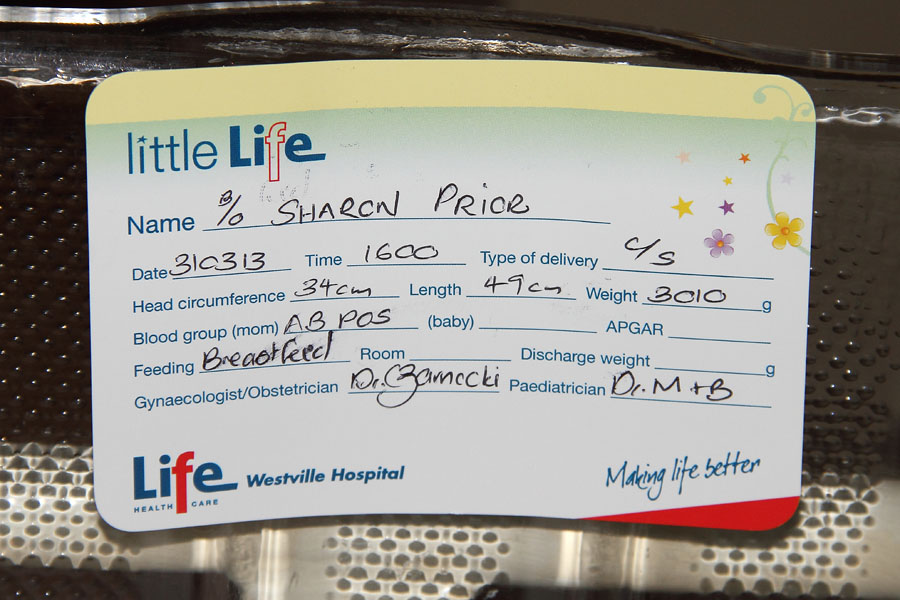 little Life
Name B/o SHARON PRIOR
Date 310313 Time 1600 Type of delivery C/S
Head circumference 34cm Length 49cm Weight 3010 g
Blood group (mom) AB POS (baby) APGAR
Feeding Breastfeed Room Discharge weight g
Gynaecologist/Obstetrician Dr. Czarnocki Paediatrician Dr. M + B
Life Westville Hospital Making life better
HEALTH CARE